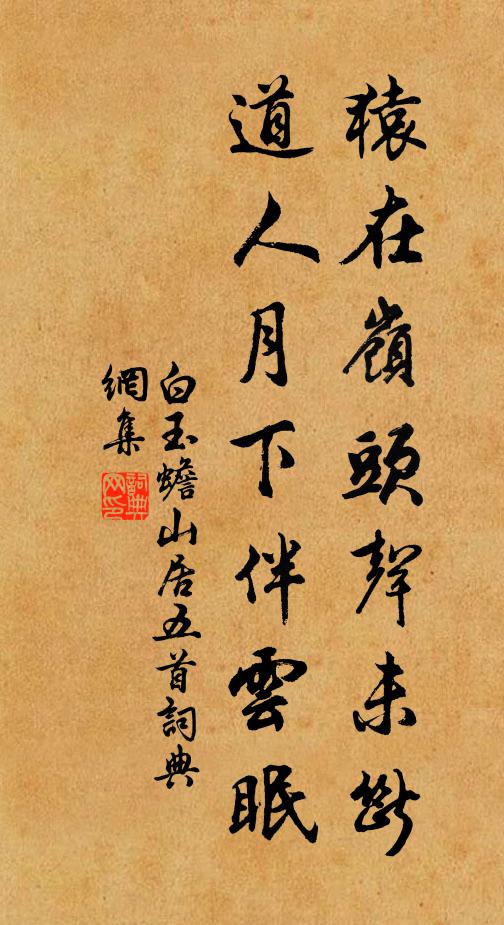 猿在嶺頭聲未斷
道人月下伴雲眠
白玉蟾山居五首詞典
網集
詞典
网印